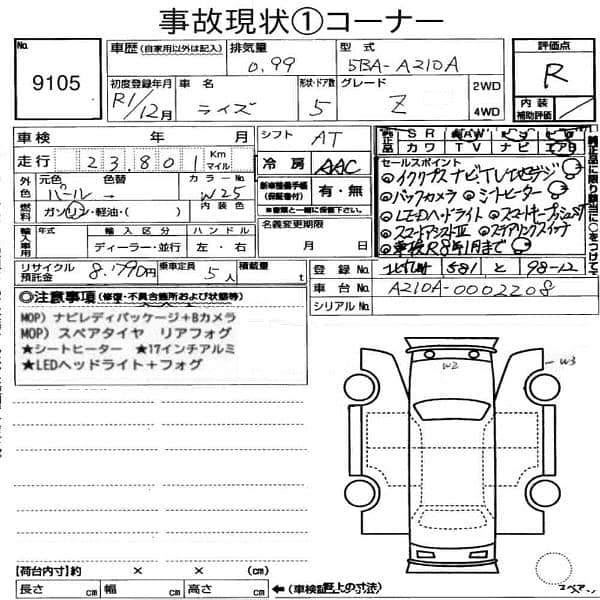 事故現状①コーナー
No.
9105
車歴 (自家用以外は記入)
排気量
0.99
型式
5BA-A210A
評価点
R
内装補助評価
初度登録年月
R1/12月
車名
ライズ
形状・ドア数
5
グレード
Z
2WD
4WD
車検 年 月
シフト AT
走行 23,801 Km マイル
冷房 AAC
外色 元色 色替
パール →
カラーNo.
W25
内装色
燃料 ガソリン・軽油・( )
新車整備手帳(保証書付) 有・無
※書類と一緒に保管
輸入車用 年式
輸入区分
ディーラー・並行
ハンドル
左・右
名義変更期限
月 日
S R
カワ TV ナビ エアB
セールスポイント
バックカメラ シートヒーター
LEDヘッドライト
ステアリングスイッチ
車検R8年1月まで
純正品に限り該当に○をつけて下さい
リサイクル預託金
8,790円
乗車定員
5人
積載量
t
登録No. 581 と 98-12
車台No. A210A-0002208
シリアルNo.
◎注意事項 (修復・不具合箇所および状態等)
MOP) ナビレディパッケージ+Bカメラ
MOP) スペアタイヤ リアフォグ
★シートヒーター ★17インチアルミ
★LEDヘッドライト+フォグ
W2
W3
【荷台内寸】約 × × (cm)
長さ cm 幅 cm 高さ cm
←(車検証上の寸法)
スペア